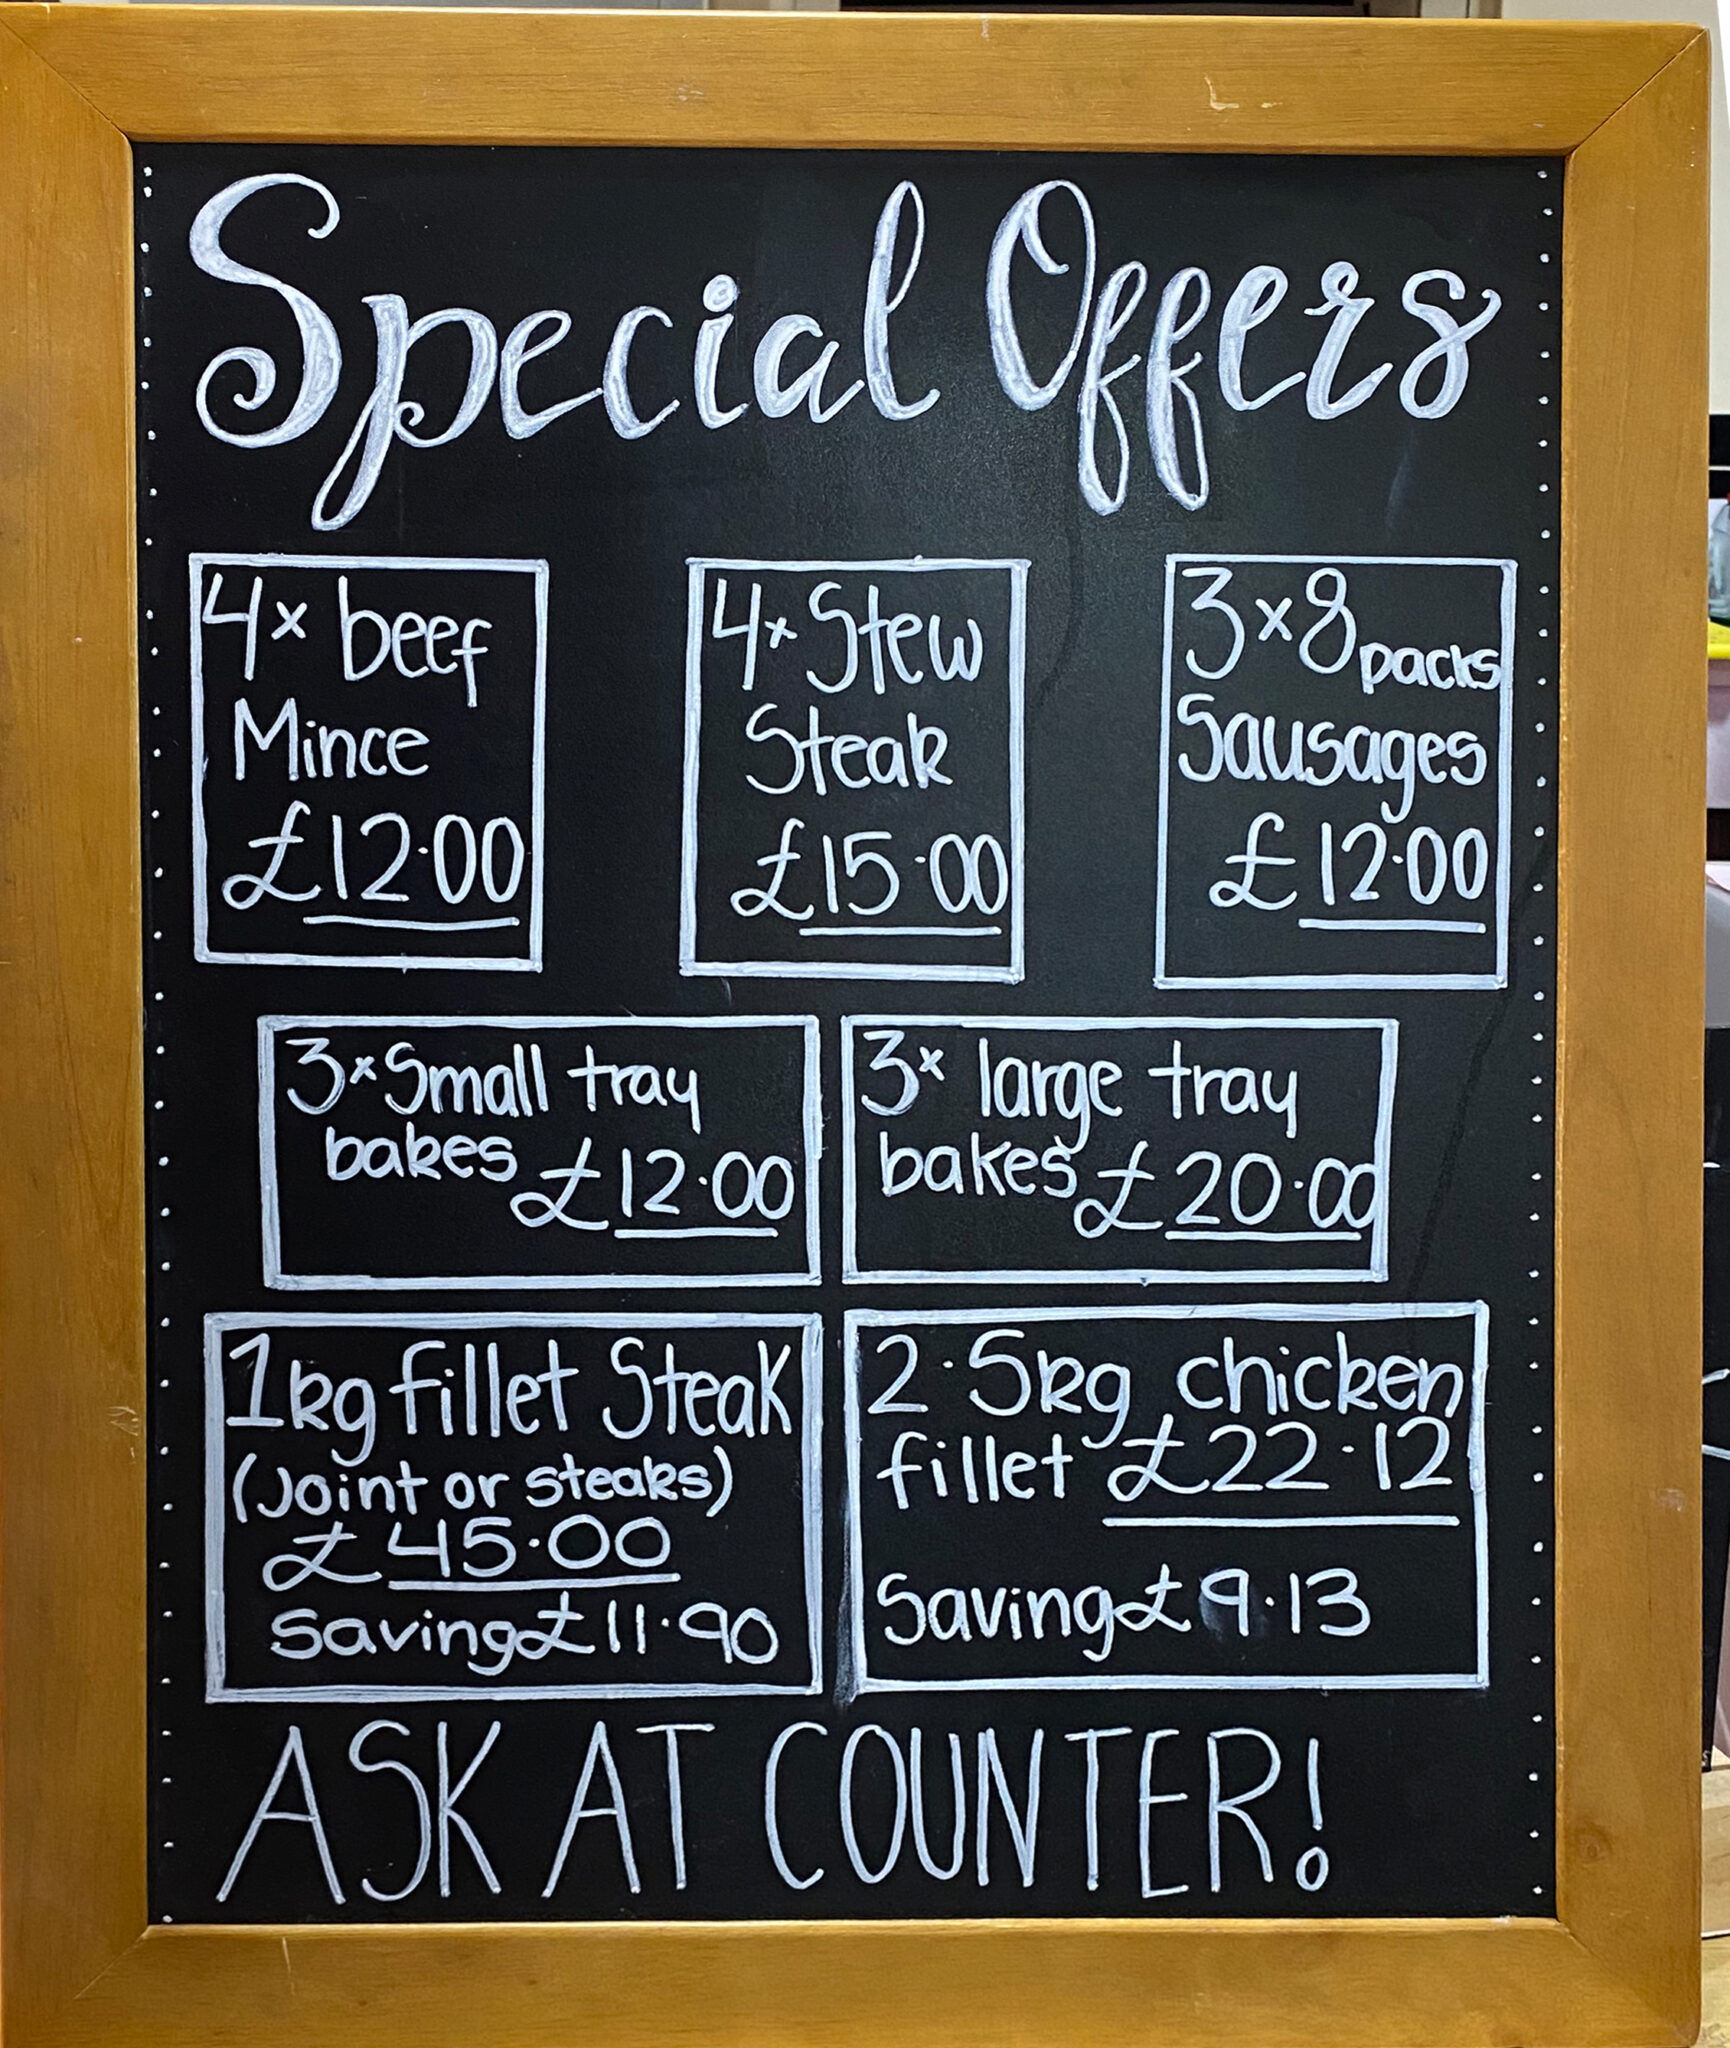 Special Offers
4x beef
Mince
£12.00
4x Stew
Steak
£15.00
3x8 packs
Sausages
£12.00
3x Small tray
bakes £12.00
3x large tray
bakes £20.00
1kg fillet Steak
(Joint or steaks)
£45.00
Saving £11.90
2.5kg chicken
fillet £22.12
Saving £9.13
ASK AT COUNTER!